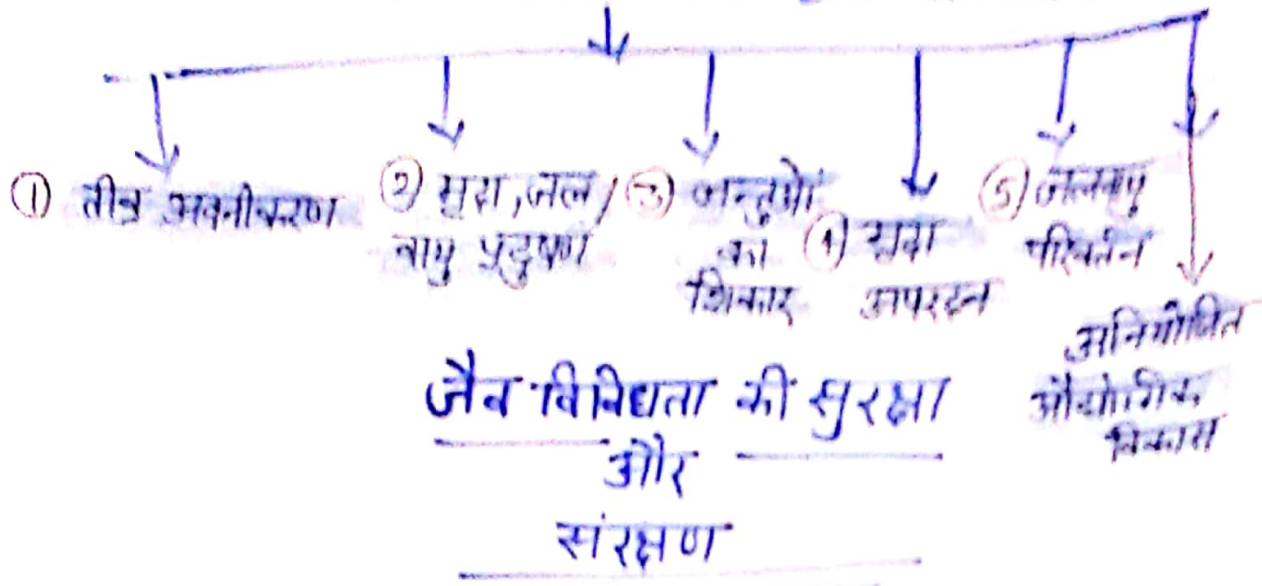 ① तीव्र अवनीकरण
② मृदा, जल,
वायु प्रदुषण
③ जन्तुओं
का
शिकार
④ मृदा
अपरदन
⑤ जलवायु
परिवर्तन
अनियोजित
औद्योगिक
विकास
जैव विविधता की सुरक्षा
और
संरक्षण